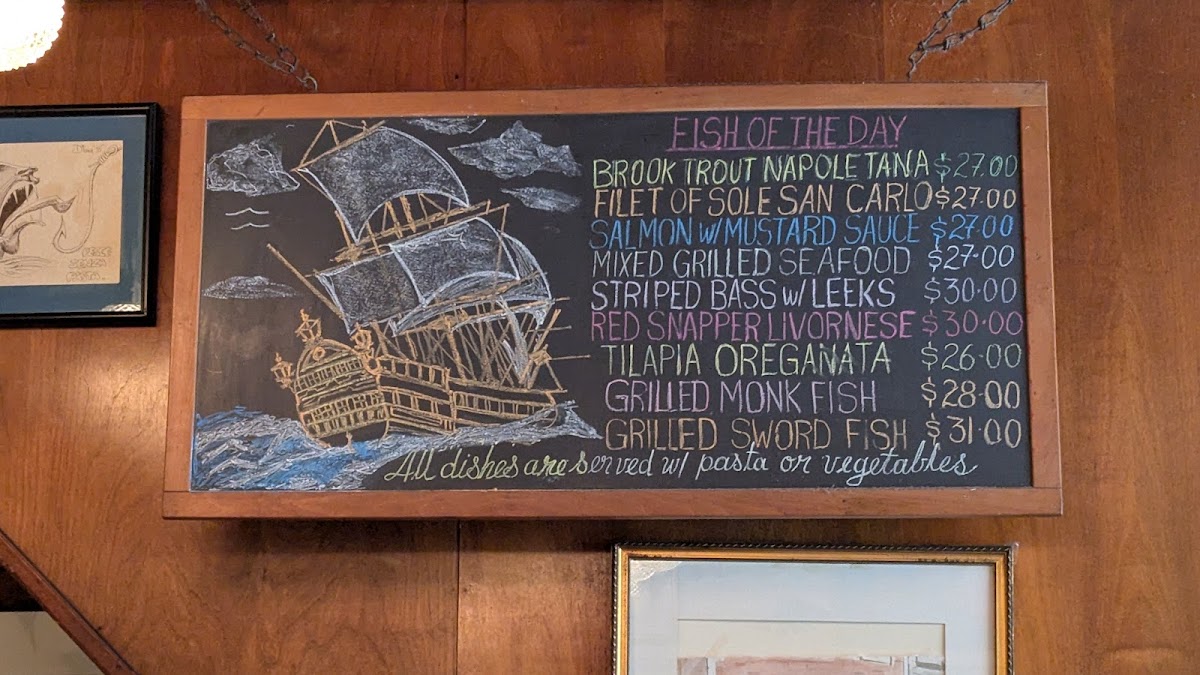 FISH OF THE DAY
BROOK TROUT NAPOLETANA $27.00
FILET OF SOLE SAN CARLO $27.00
SALMON W/ MUSTARD SAUCE $27.00
MIXED GRILLED SEAFOOD $27.00
STRIPED BASS W/ LEEKS $30.00
RED SNAPPER LIVORNESE $30.00
TILAPIA OREGANATA $26.00
GRILLED MONK FISH $28.00
GRILLED SWORD FISH $31.00
All dishes are served w/ pasta or vegetables